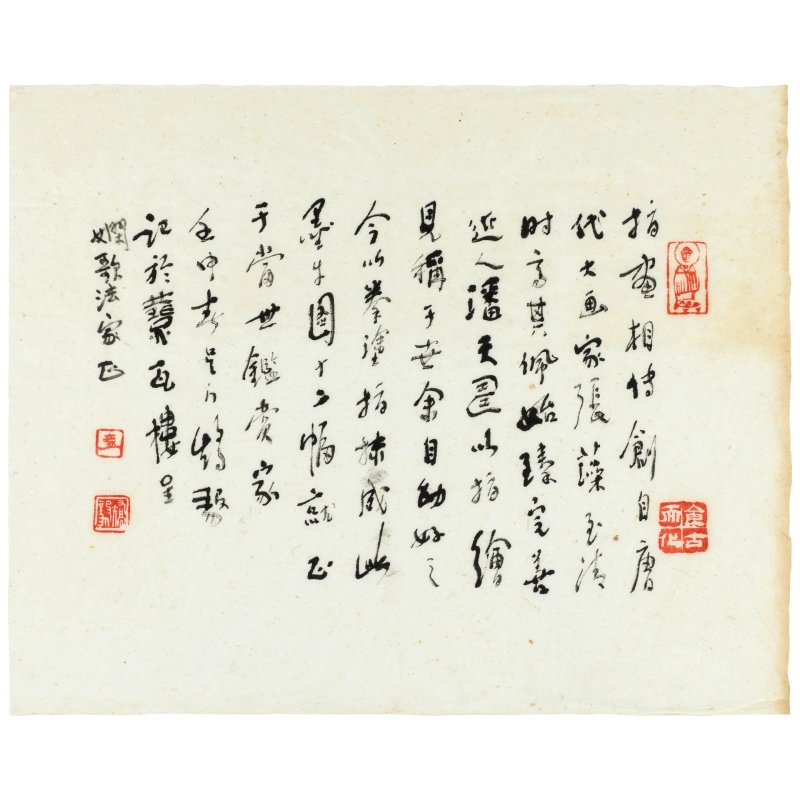 指畫相傳創自唐
代大画家張藻至清
时高其佩始臻完善
近人潘天壽以指繪
見稱于世余自幼好之
今以拳塗指抹成此
墨牛圖十二幅就正
于當世鑑賞家
壬申春
記於瓦樓呈
嫻歌法家正
食古而化